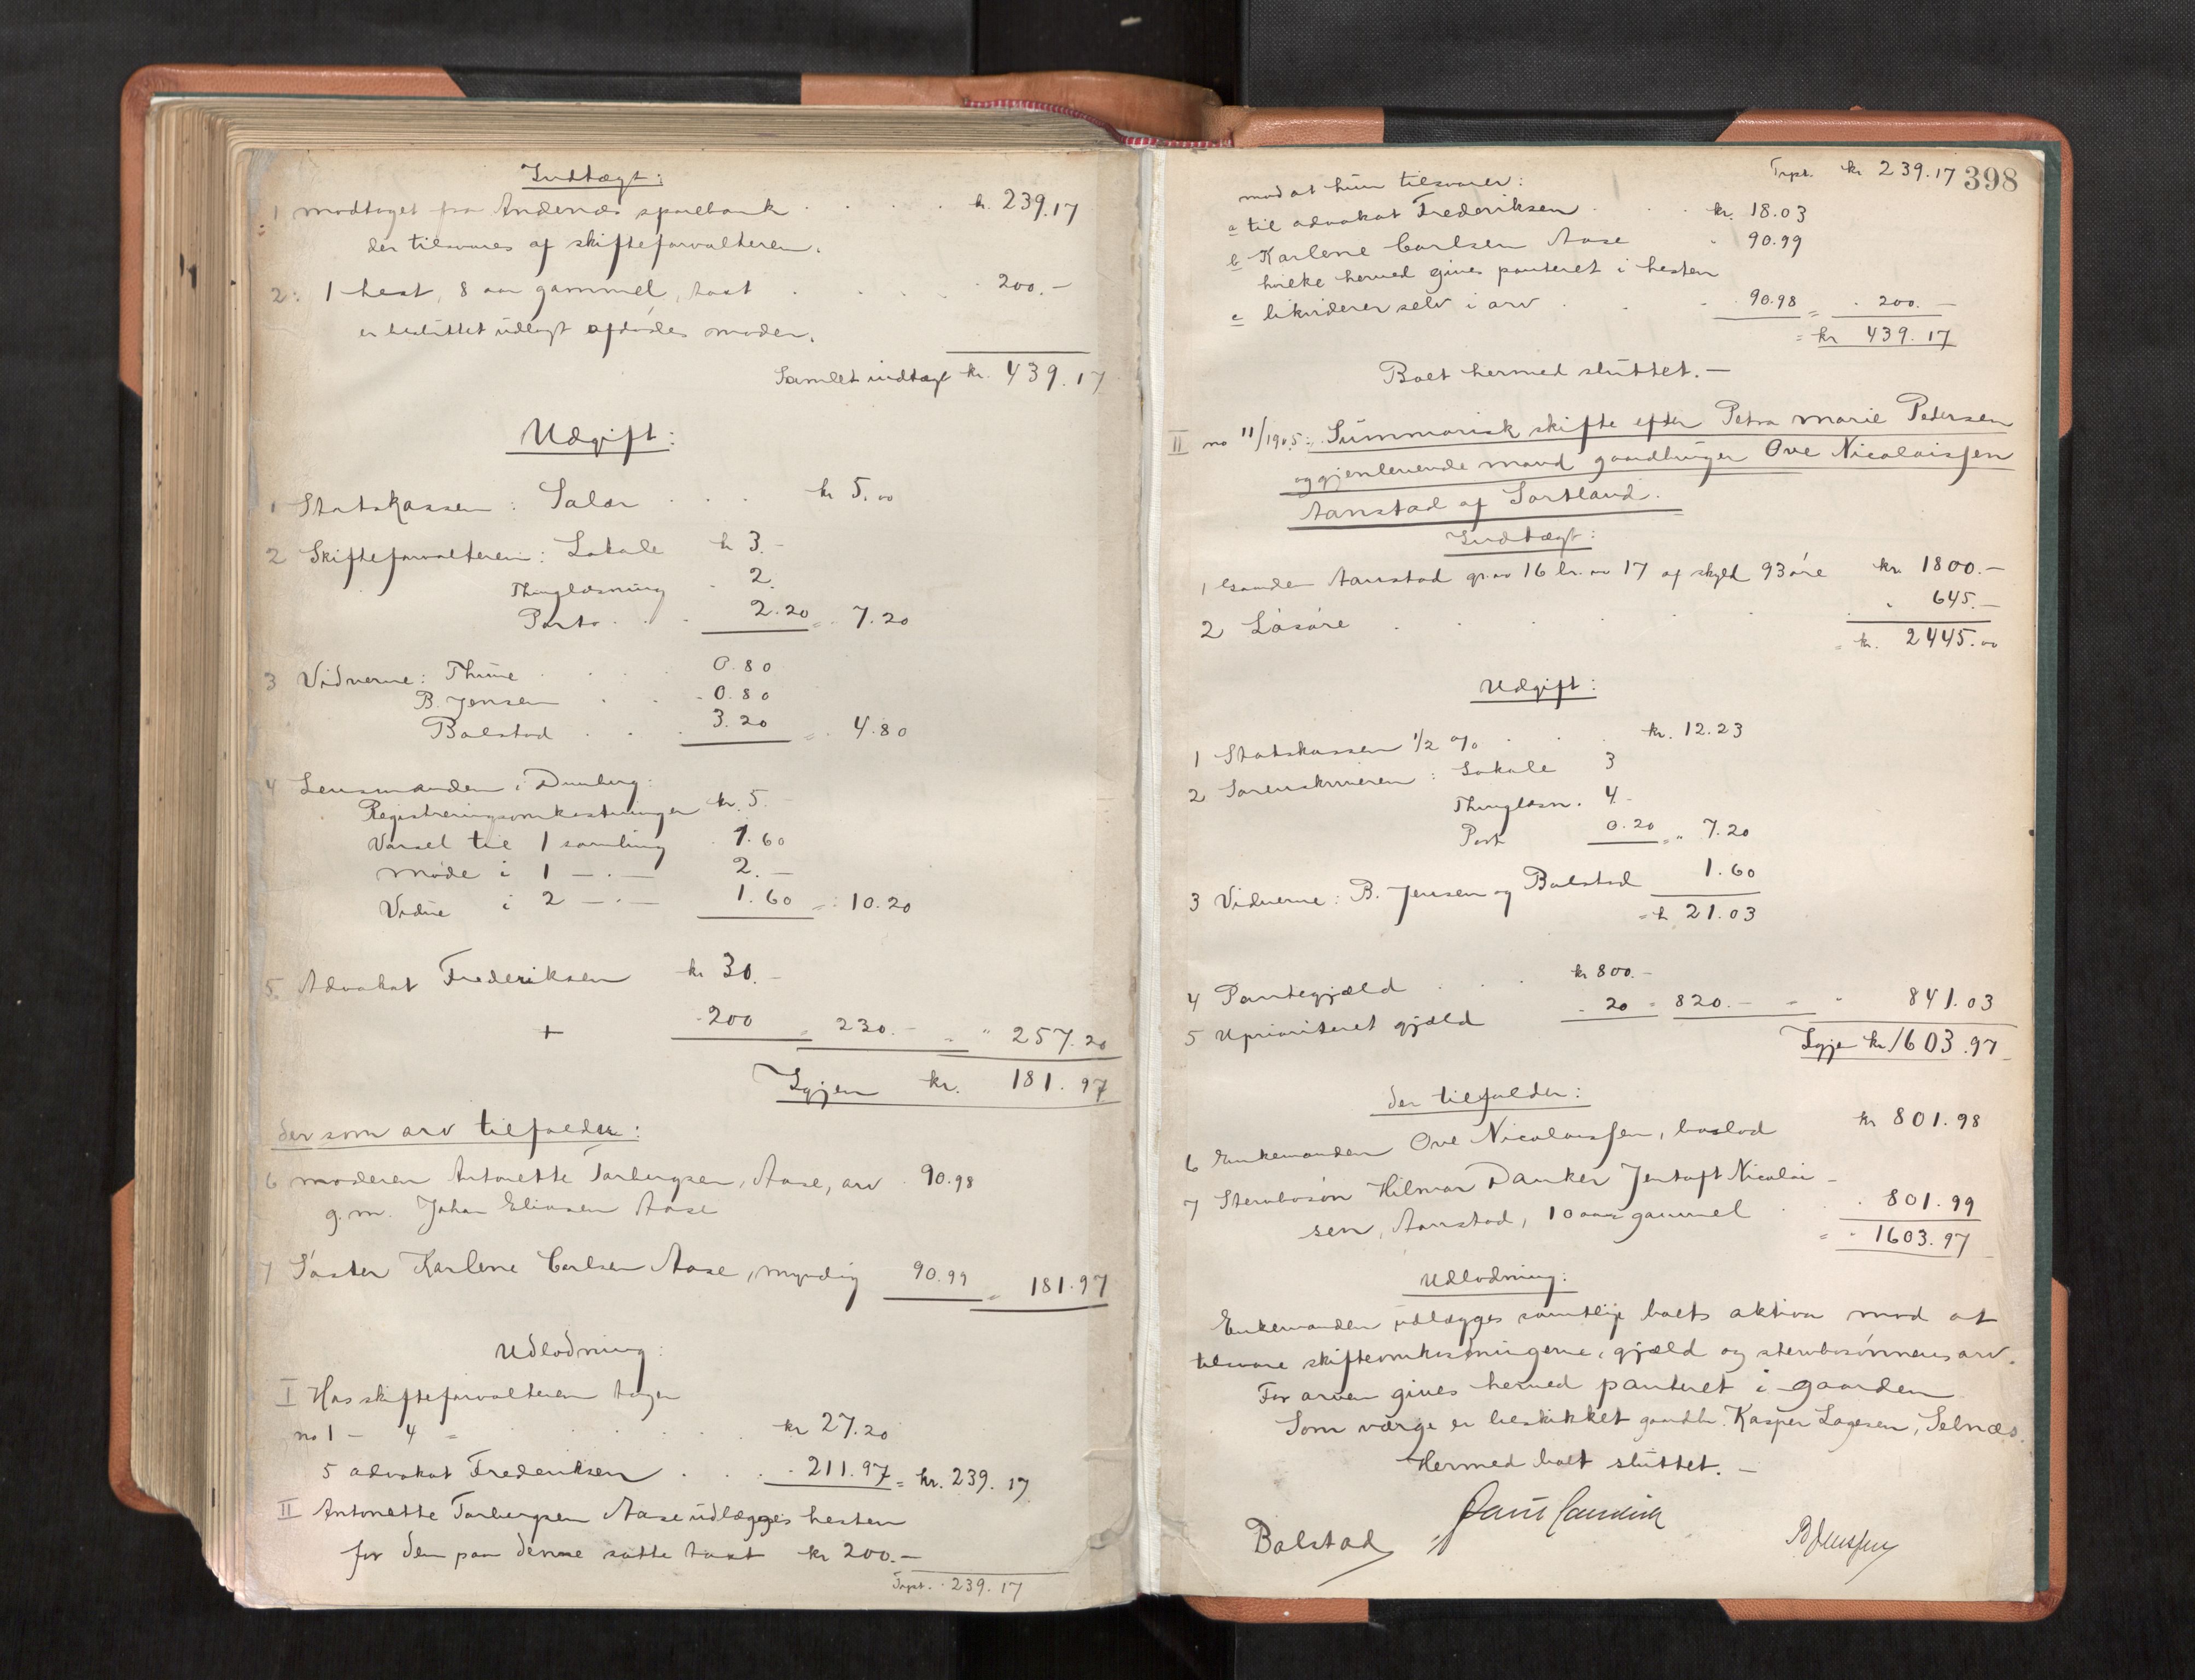 Indtægt:
1 modtaget fra Andenæs sparebank . . . . kr. 239.17
der tilsvares af skifteforvalteren.
2: 1 hest, 8 aar gammel, taxt . . . . 200.–
er besluttet udlagt afdødes moder.
Samlet indtægt kr. 439.17
Udgift:
1 Statskassen: Salær . . . kr 5.00
2 Skifteforvalteren: Lokale kr 3.–
Thinglæsning . 2.
Porto . . . 2.20 = . 7.20
3 Vidnerne: Thune . . . . 0.80
B. Jensen . . - 0.80
Balstad . . . 3.20 = . 4.80
4 Lensmanden i Dverberg:
Registreringsomkostninger kr. 5.–
Varsel til 1 samling . 1.60
møde i 1 – . – 2.–
Vidne i 2 – . – 1.60 = . 10.20
5. Advokat Frederiksen kr 30.–
+ . 200 = 230.– = " 257.20
Igjen kr. 181.97
der som arv tilfalder:
6 moderen Antonette Torbergsen, Aase, arv . 90.98
g.m. Johan Eliasen Aase
7 Søster Karlene Carlsen Aase, myndig 90.99 = 181.97
Udlodning:
I Hos skifteforvalteren tager
no 1 – 4 = . . . . . kr 27.20
5 advokat Frederiksen . . . . 211.97 = kr. 239.17
II Antonette Torbergsen Aase udlægges hesten
for den paa denne satte taxt kr 200.–
Trpt. . 239.17
398
Trpt. kr 239.17
mod at hun tilsvarer:
a til advokat Frederiksen . . . kr. 18.03
b Karlene Carlsen Aase " 90.99
hvilke hermed gives panteret i hesten
c likviderer selv i arv . . . 90.98 = . 200.–
= kr 439.17
Boet hermed sluttet.–
II no 11/1905: Summarisk skifte efter Petra Marie Pedersen
og gjenlevende mand gaardbruger Ove Nicolaissen
Aanstad af Sortland.
Indtægt:
1 Gaarden Aanstad gr. no 16 br. no 17 af skyld 93 øre kr. 1800.–
2 Løsøre . . . . . . " 645.–
= kr. 2445.00
Udgift:
1 Statskassen 1/2 % . . . kr. 12.23
2 Sorenskriveren: Lokale 3
Thinglæsn. 4.–
Port 0.20 = " 7.20
3 Vidnerne: B. Jensen og Balstad 1.60
= kr 21.03
4 Pantegjæld . . . kr 800.–
5 Uprioriteret gjæld . 20 = 820.– = " 841.03
Igjen kr 1603.97
der tilfalder:
6 Enkemanden Ove Nicolaissen, boslod kr 801.98
7 Stervbosøn Hilmar Danker Jentoft Nicolai-
sen, Aanstad, 10 aar gammel . . . 801.99
= " 1603.97
Udlodning:
Enkemanden udlægges samtlige boets aktiva mod at
tilsvare skifteomkostningerne, gjæld og stervbosønnens arv.
For arven gives hermed panteret i gaarden
Som værge er beskikket gaardbr. Kasper Lagesen, Selnæs.
Hermed boet sluttet.–
Balstad
B Jensen